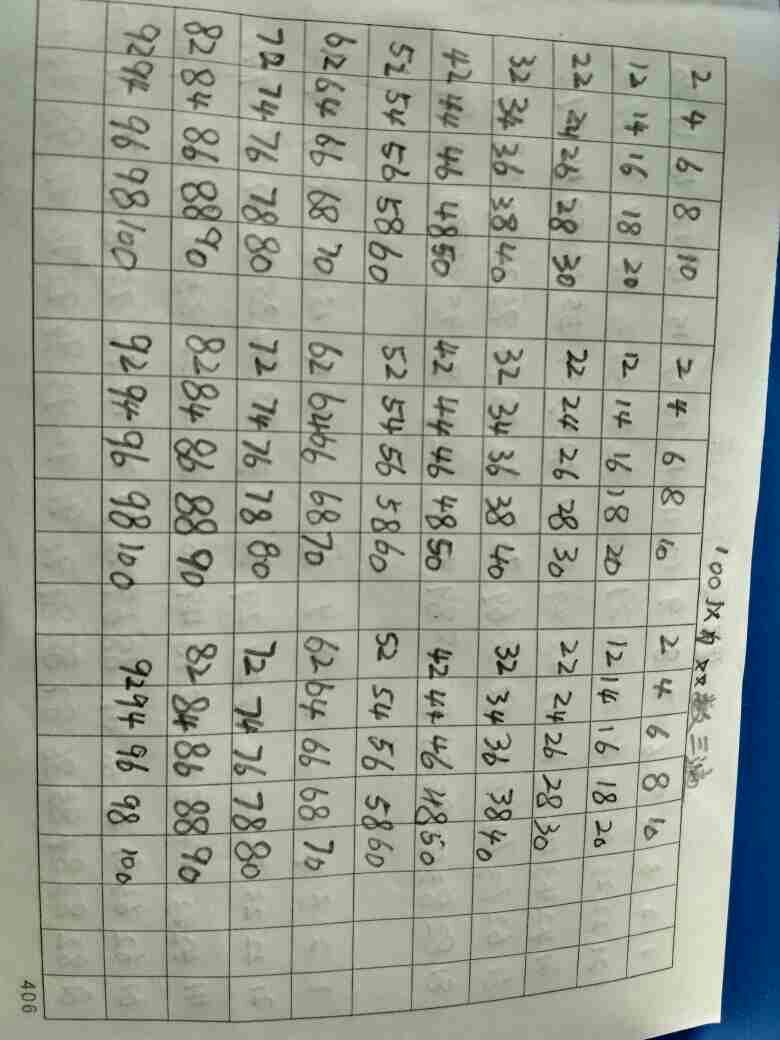 100以内双数三遍
2 4 6 8 10 2 4 6 8 10 2 4 6 8 10
12 14 16 18 20 12 14 16 18 20 12 14 16 18 20
22 24 26 28 30 22 24 26 28 30 22 24 26 28 30
32 34 36 38 40 32 34 36 38 40 32 34 36 38 40
42 44 46 48 50 42 44 46 48 50 42 44 46 48 50
52 54 56 58 60 52 54 56 58 60 52 54 56 58 60
62 64 66 68 70 62 64 66 68 70 62 64 66 68 70
72 74 76 78 80 72 74 76 78 80 72 74 76 78 80
82 84 86 88 90 82 84 86 88 90 82 84 86 88 90
92 94 96 98 100 92 94 96 98 100 92 94 96 98 100
406